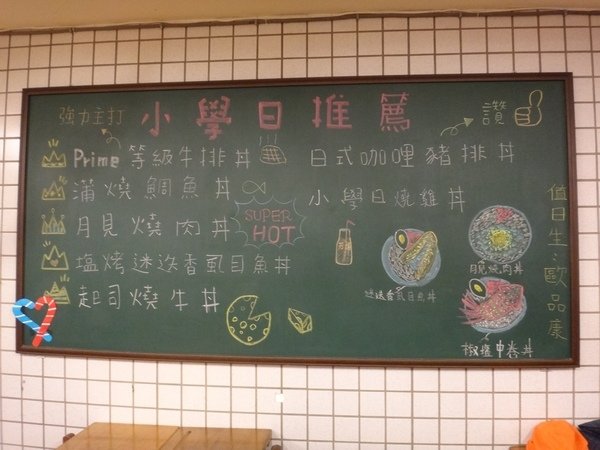 強力主打
小學日推薦
讚
Prime等級牛排丼
蒲燒鯛魚丼
月見燒肉丼
塩烤迷迭香虱目魚丼
起司燒牛丼
SUPER
HOT
日式咖哩豬排丼
小學日燒雞丼
迷迭香虱目魚丼
月見燒肉丼
椒鹽中卷丼
值日生：歐品康